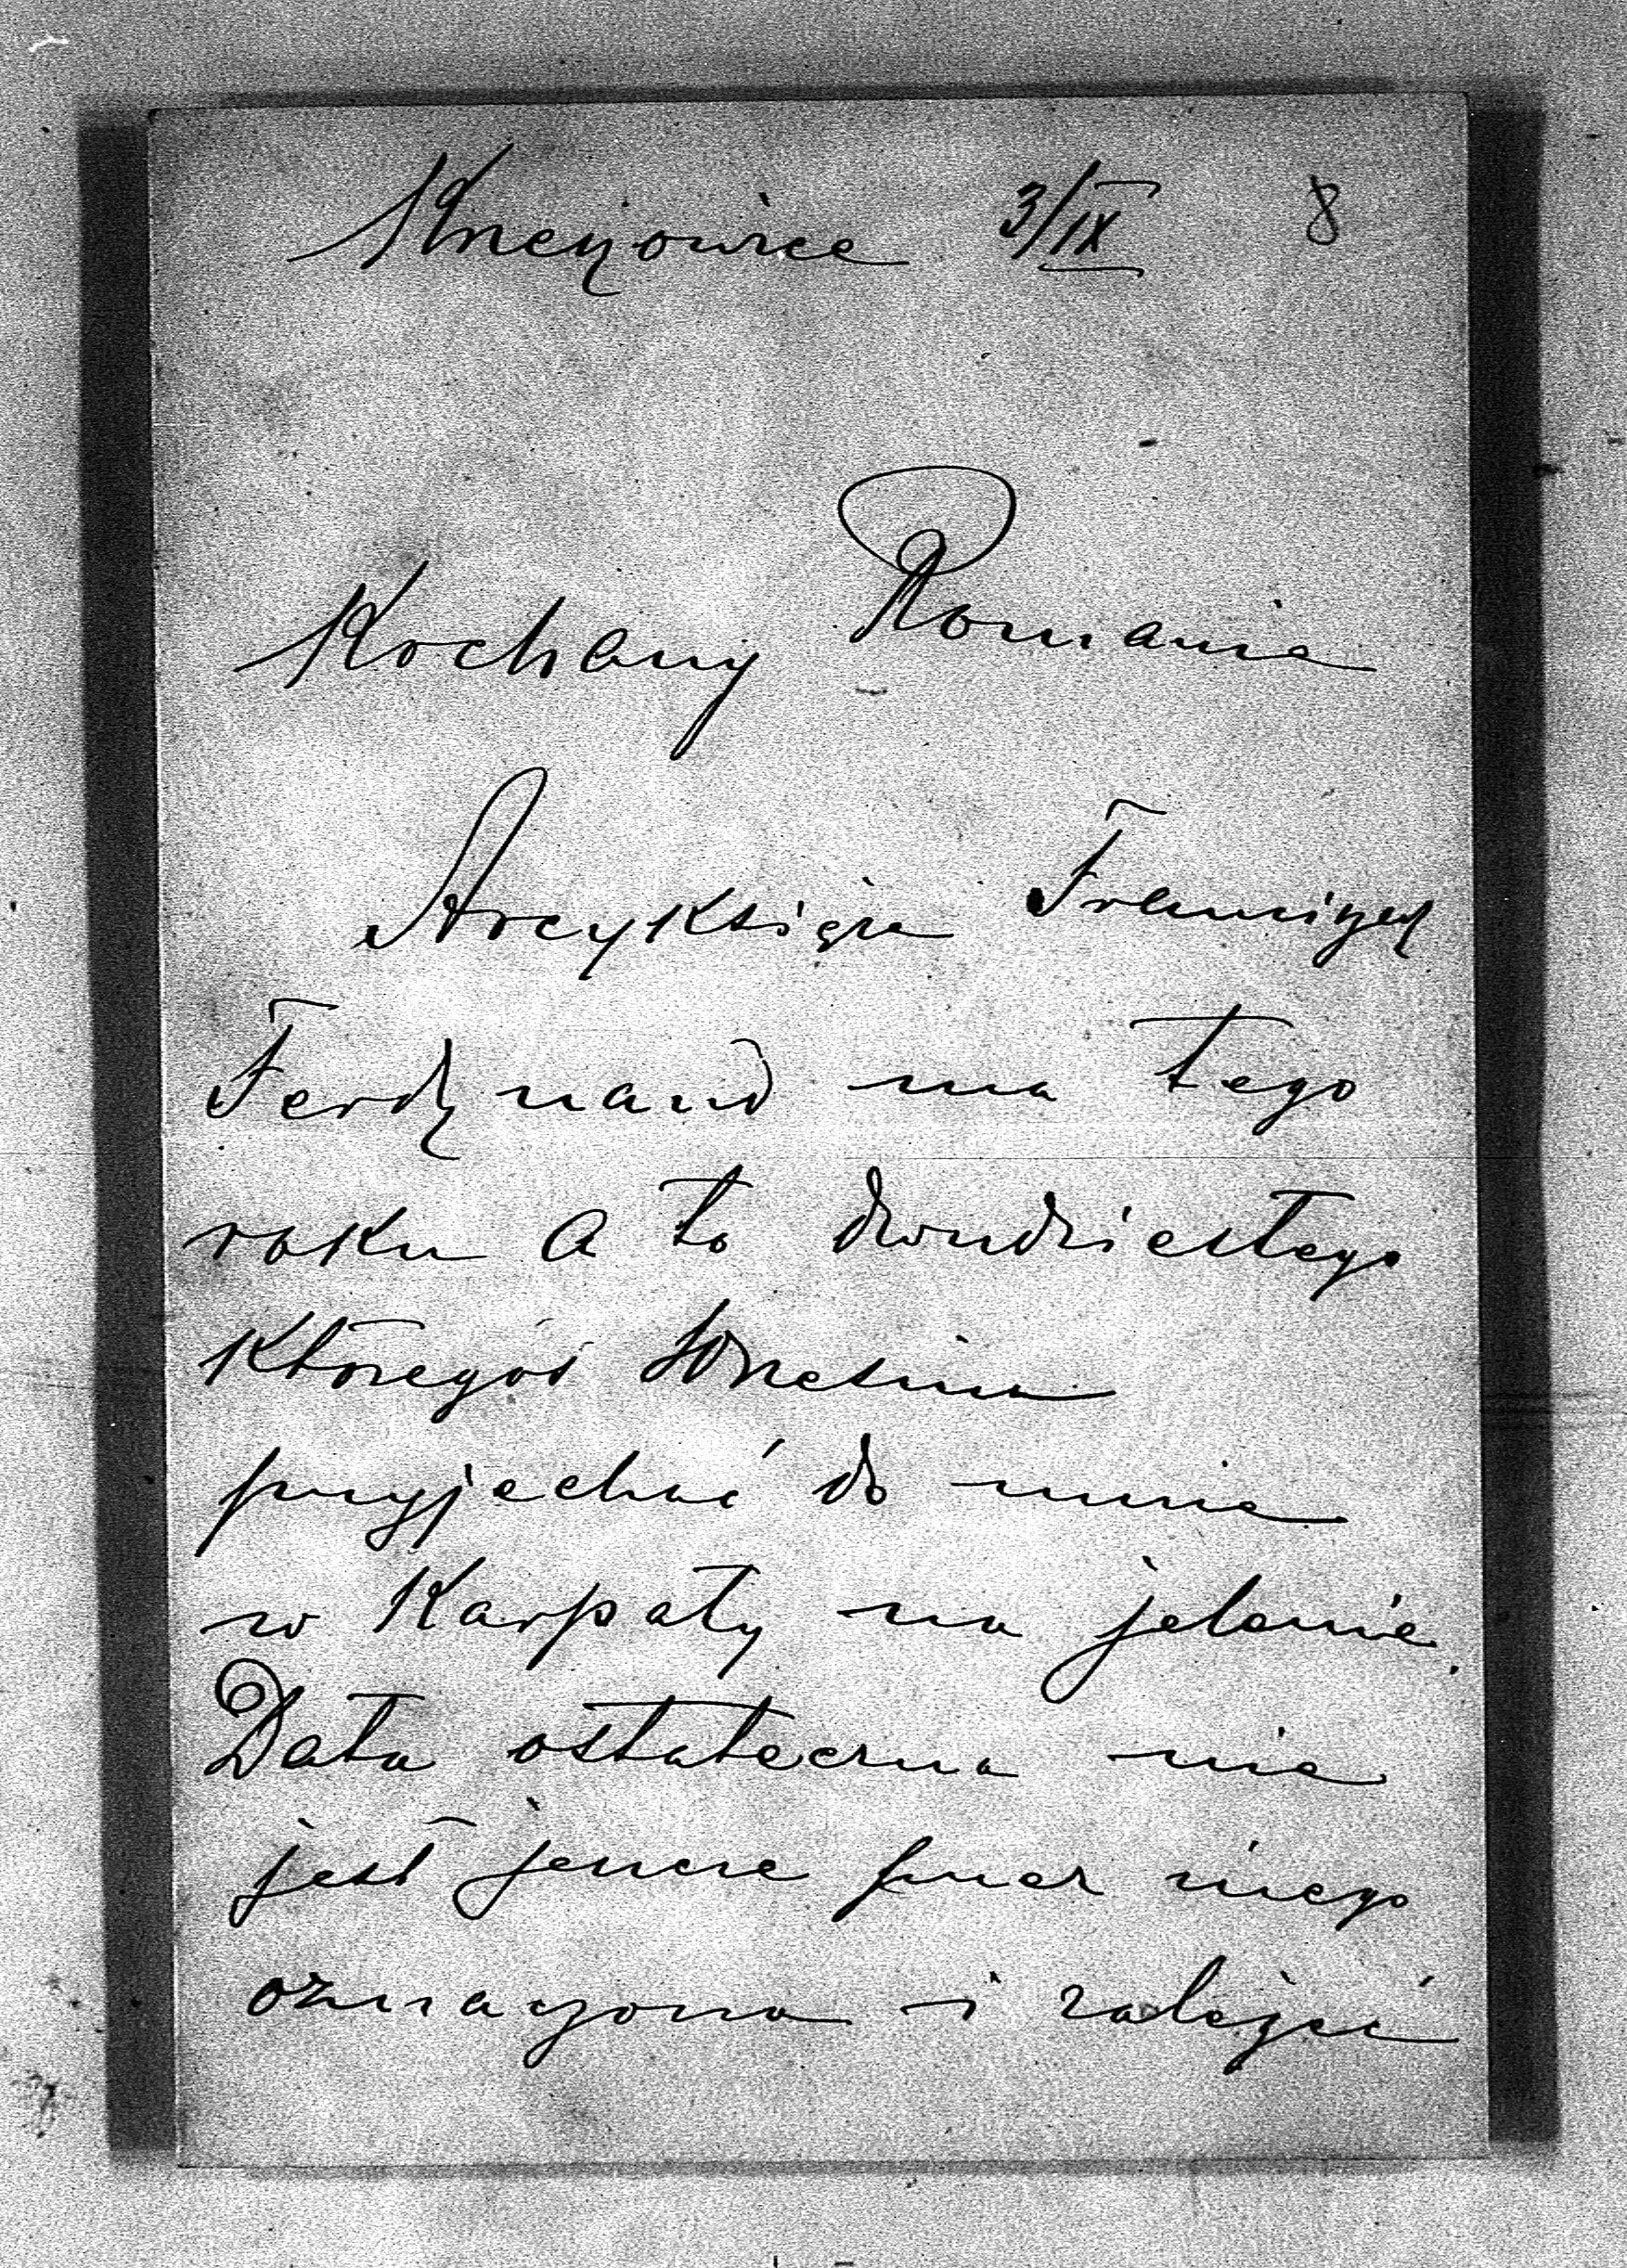 Knezowice 3/IX 8
Kochany Romanie
Arcyksiąże Franciszek
Ferdynand ma tego
roku a to dwudziestego
któregoś Września
przyjechać do mnie
w Karpaty na jelenie.
Data ostateczna nie
jest jeszcze przez niego
oznaczona i zależeć